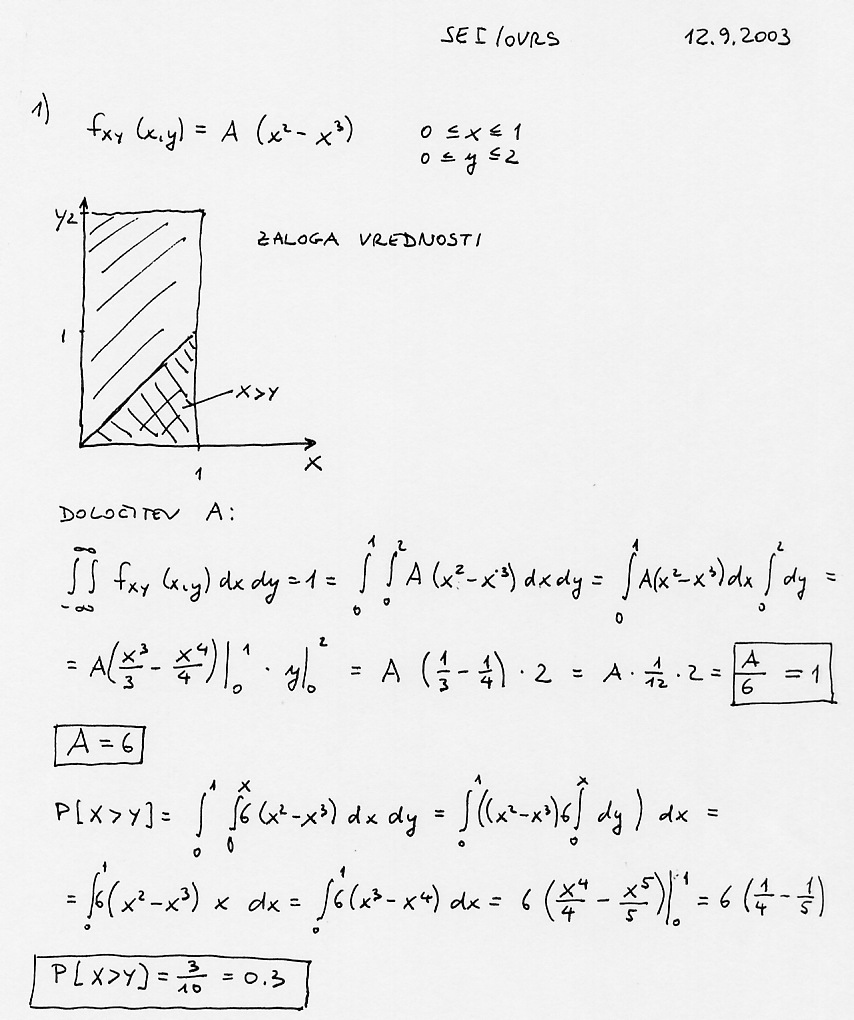 SEI/OVRS 12.9.2003
1) fxy (x,y) = A (x² - x³) 0 ≤ x ≤ 1
0 ≤ y ≤ 2
Y 2
ZALOGA VREDNOSTI
1
X>Y
1
X
DOLOČITEV A:
∫∫_{-∞}^{∞} fxy (x,y) dx dy = 1 = ∫_0^1 ∫_0^2 A (x² - x³) dx dy = ∫_0^1 A(x² - x³) dx ∫_0^2 dy =
= A(x³/3 - x⁴/4)|_0^1 · y|_0^2 = A (1/3 - 1/4) · 2 = A · 1/12 · 2 = A/6 = 1
A = 6
P[X>Y] = ∫_0^1 ∫_0^x 6 (x² - x³) dx dy = ∫_0^1 ((x² - x³) 6 ∫_0^x dy) dx =
= ∫_0^1 6(x² - x³) x dx = ∫_0^1 6(x³ - x⁴) dx = 6 (x⁴/4 - x⁵/5)|_0^1 = 6 (1/4 - 1/5)
P[X>Y] = 3/10 = 0.3